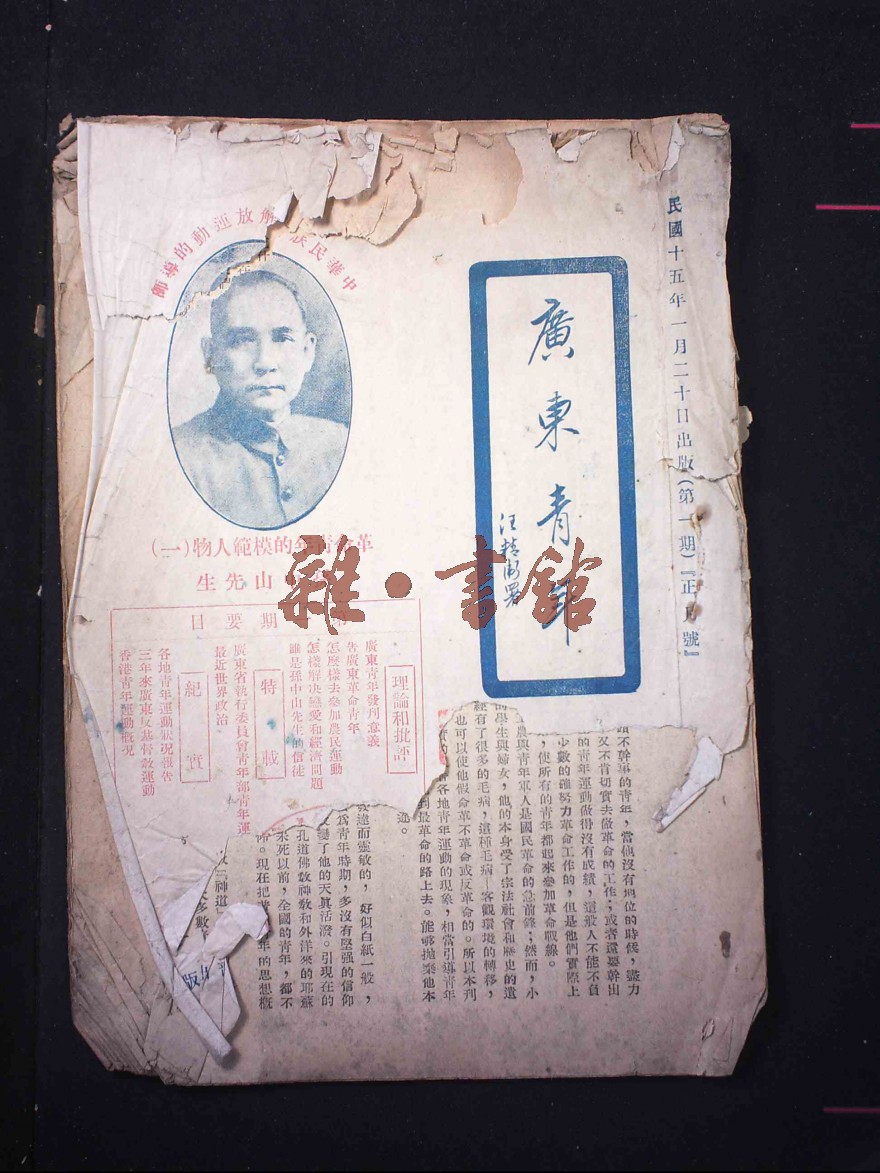 民國十五年一月二十日出版(第一期)『正月號』
廣東青年
汪精衛署
中華民族解放運動的導師
革命青年的模範人物(一)
山先生
期要目
理論和批評
廣東青年發刊意義
告廣東革命青年
怎麼樣去參加農民運動
怎樣解决戀愛和經濟問題
誰是孫中山先生的信徒
特載
廣東省執行委員會青年部青年運
最近世界政治
紀實
各地青年運動狀况報告
三年來廣東反基督教運動
香港青年運動概况
不幹革的青年,當他沒有地位的時候,盡力
又不肯切實去做革命的工作;或者還要幹出
的青年運動做得沒有成績,這般人不能不負
少數的確努力革命工作的,但是他們實際上
,使所有的青年都起來參加革命戰線。
農與青年軍人是國民革命的急前鋒;然而,小
的學生與婦女,他的本身受了宗法社會和歷史的遺
經有了很多的毛病,這種毛病—客觀環境的轉移,
也可以使他假命革不革命或反革命的。所以本刊
各地青年運動的現象,相當引導青年
到最革命的路上去。能够拋棄他本
而靈敏的,好似白紙一般,
為青年時期,多沒有堅强的信仰
變了他的天真活潑。引現在的
孔道佛教神教和外洋來的耶蘇
未死以前,全國的青年,都不
。現在把
年的思想概
『神道』
大多數
版
雜·書館